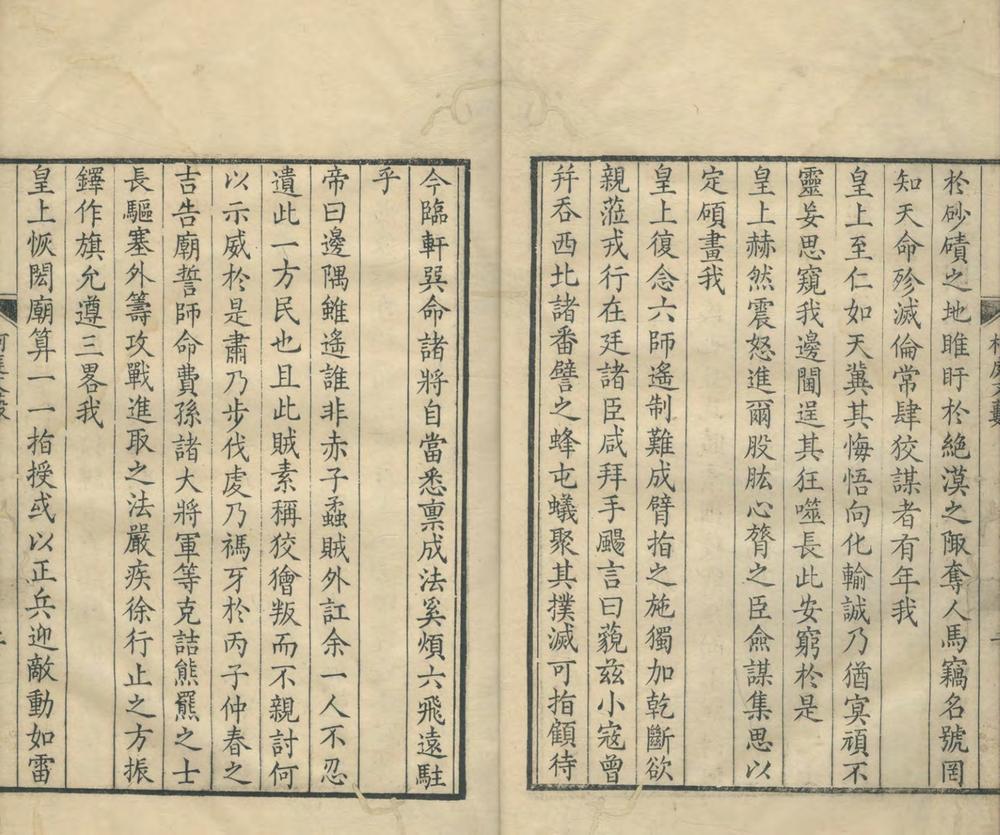 於砂磧之地睢盱於絶漠之陬奪人馬竊名號罔
知天命殄滅倫常肆狡謀者有年我
皇上至仁如天冀其悔悟向化輸誠乃猶㝠頑不
靈妄思窺我邊閫逞其狂噬長此安窮於是
皇上赫然震怒進爾股肱心膂之臣僉謀集思以
定碩畫我
皇上復念六師遙制難成臂指之施獨加乾斷欲
親蒞戎行在廷諸臣咸拜手颺言曰藐茲小寇曾
幷吞西北諸番譬之蜂屯蟻聚其撲滅可指顧待
今臨軒巽命諸將自當悉禀成法奚煩六飛遠駐
乎
帝曰邊隅雖遙誰非赤子蟊賊外訌余一人不忍
遺此一方民也且此賊素稱狡獪叛而不親討何
以示威於是肅乃步伐虔乃禡牙於丙子仲春之
吉告廟誓師命費孫諸大將軍等克詰熊羆之士
長驅塞外籌攻戰進取之法嚴疾徐行止之方振
鐸作旗允遵三畧我
皇上恢閎廟算一一指授或以正兵迎敵動如雷